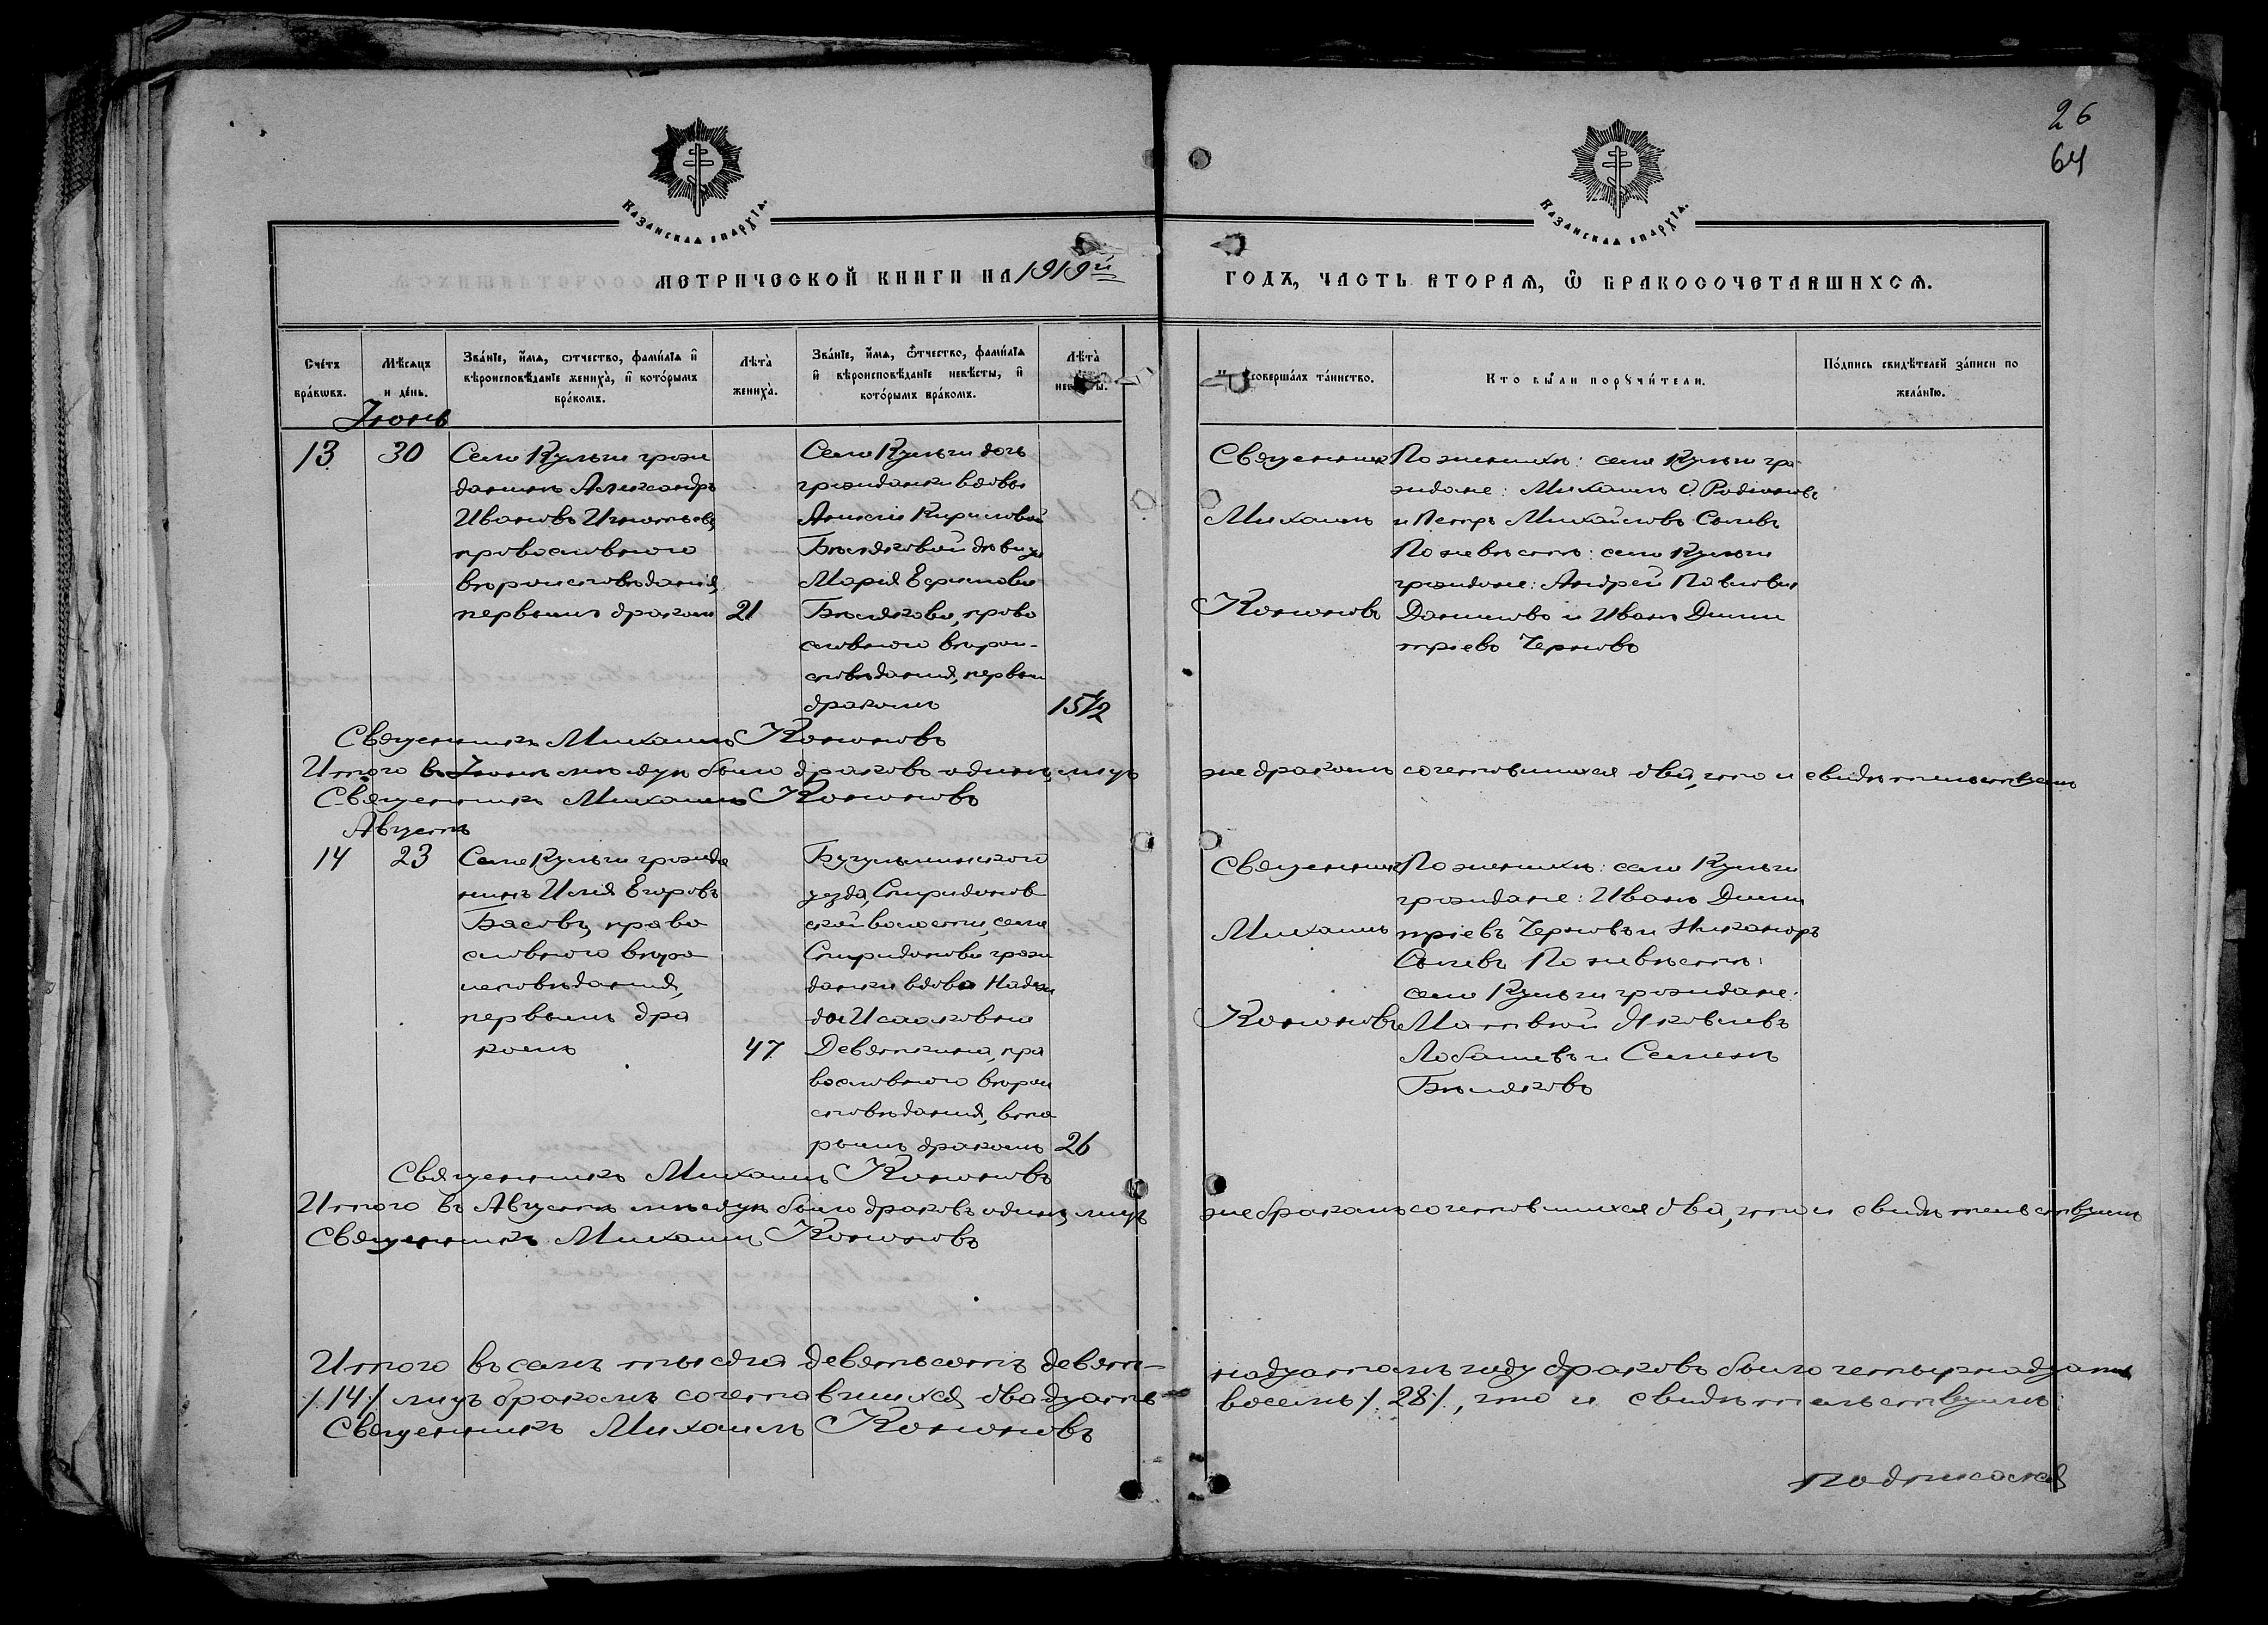 26
64
КАЗАНСКАЯ ЕПАРХІЯ.
КАЗАНСКАЯ ЕПАРХІЯ.
МЕТРИЧЕСКОЙ КНИГИ НА 1919й
ГОДЪ, ЧАСТЬ ВТОРАЯ, Ѿ БРАКОСОЧЕТАВШИХСЯ.
Счетъ браковъ.
Мѣсяцъ и день.
Званіе, имя, отчество, фамилія и
вѣроисповѣданіе жениха, и которымъ
бракомъ.
Лѣта
жениха.
Званіе, имя, ѿтчество, фамилія
и вѣроисповѣданіе невѣсты, и
которымъ бракомъ.
Лѣта
совершалъ таинство.
Кто были поручители.
Подпись свидѣтелей записи по
желанію.
Іюнь
13
30
Села Кульги граж
данинъ Александръ
Ивановъ Игнатьевъ,
православнаго
вѣроисповѣданія,
первымъ бракомъ
21
Села Кульги дочь
гражданки вдовы
Кириловой
Бѣляковой дѣвица
Марія Ефимова
Бѣлякова, право
славнаго вѣрои-
сповѣданія, первым
бракомъ
15 1/2
Священникъ
Михаилъ
Кононовъ
По женихѣ: села Кульги гра-
ждане: Михаилъ Родионовъ
и Петръ Михайловъ Сычевъ
По невѣстѣ: села Кульги
граждане: Андрей Павловъ
Даниловъ и Иванъ Дими
тріевъ Черновъ
Священникъ Михаилъ Кононовъ
Итого въ Іюнѣ мѣсяцѣ было браковъ одинъ, лицъ
же бракомъ сочетавшихся два, что и свидѣтельствуемъ
Священникъ Михаилъ Кононовъ
Августъ
14
23
Села Кульги гражда
нинъ Илія Егоровъ
Басовъ, право
славнаго вѣро
исповѣданія,
первымъ бра
комъ
47
Бугульминского
уезда, Спиридонов
ской волости, села
Спиридоновки граж
данка вдова Надеж
да Исааковна
Девяткина, пра
вославнаго вѣрои
сповѣданія, вто
рымъ бракомъ
26
Священникъ
Михаилъ
Кононовъ
По женихѣ: села Кульги
граждане: Иванъ Дими
тріевъ Черновъ и Никаноръ
Сычевъ По невѣстѣ:
села Кульги граждане:
Матвѣй Яковлевъ
Лобашевъ и Семенъ
Бѣляковъ
Священникъ Михаилъ Кононовъ
Итого въ Августѣ мѣсяцѣ было браковъ одинъ, лицъ
же бракомъ сочетавшихся два, что и свидѣтельствуемъ
Священникъ Михаилъ Кононовъ
Итого въ семъ тысяча девятьсотъ девят-
надцатомъ году браковъ было четырнадцать
/.14/ лицъ бракомъ сочетавшихся двадцать
восемь /.28/., что и свидѣтельствуемъ:
Священникъ Михаилъ Кононовъ